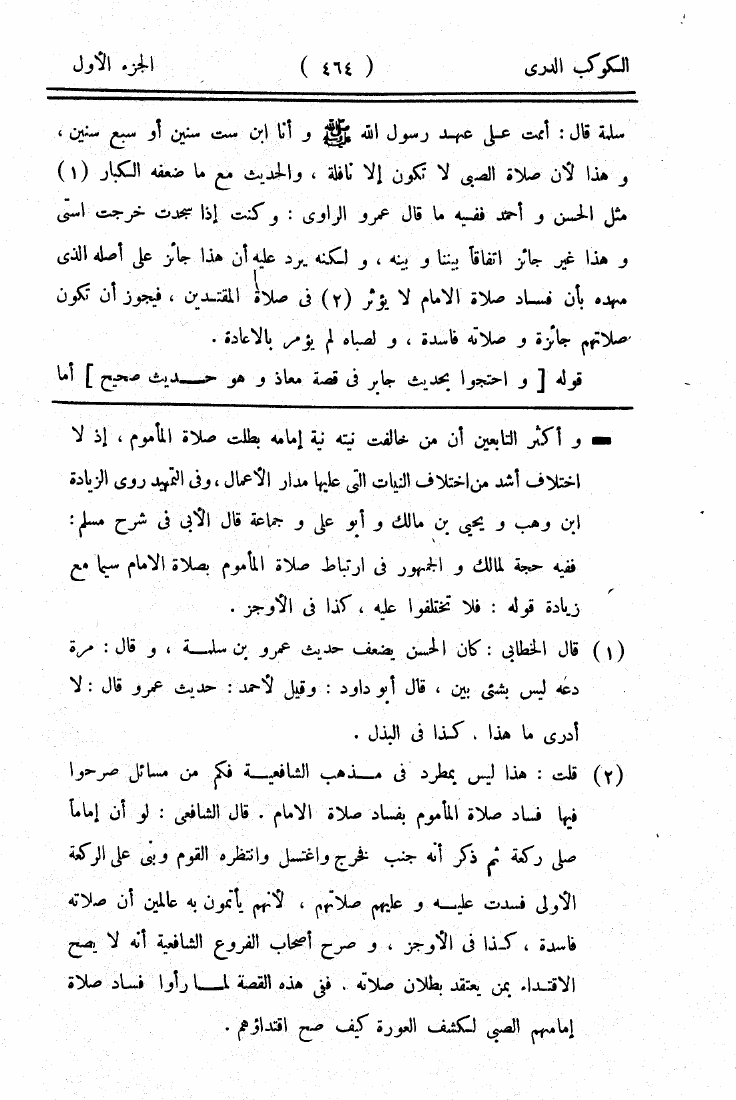 الكوكب الدرى ( ٤٦٤ ) الجزء الأول
سلمة قال : أممت على عهد رسول الله ﷺ و أنا ابن ست سنين أو سبع سنين ،
و هذا لأن صلاة الصبى لا تكون إلا نافلة ، والحديث مع ما ضعفه الكبار (١)
مثل الحسن و أحمد ففيه ما قال عمرو الراوى : و كنت إذا سجدت خرجت استى
و هذا غير جائز اتفاقاً بيننا و بينه ، و لكنه يرد عليه أن هذا جائز على أصله الذى
مهده بأن فساد صلاة الامام لا يؤثر (٢) فى صلاة المقتدين ، فيجوز أن تكون
صلاتهم جائزة و صلاته فاسدة ، و لصباه لم يؤمر بالاعادة .
قوله [ و احتجوا بحديث جابر فى قصة معاذ و هو حديث صحيح ] أما
و أكثر التابعين أن من خالفت نيته نية إمامه بطلت صلاة المأموم ، إذ لا
اختلاف أشد من اختلاف النيات التى عليها مدار الأعمال ، وفى التمهيد روى الزيادة
ابن وهب و يحيى بن مالك و أبو على و جماعة قال الأبى فى شرح مسلم :
ففيه حجة لمالك و الجمهور فى ارتباط صلاة المأموم بصلاة الامام سيما مع
زيادة قوله : فلا تختلفوا عليه ، كذا فى الأوجز .
(١) قال الخطابى : كان الحسن يضعف حديث عمرو بن سلمة ، و قال : مرة
دعه ليس بشئى بين ، قال أبو داود : وقيل لأحمد : حديث عمرو قال : لا
أدرى ما هذا . كذا فى البذل .
(٢) قلت : هذا ليس بمطرد فى مذهب الشافعية فكم من مسائل صرحوا
فيها فساد صلاة المأموم بفساد صلاة الامام . قال الشافعى : لو أن إماماً
صلى ركعة ثم ذكر أنه جنب فخرج واغتسل وانتظره القوم وبنى على الركعة
الأولى فسدت عليه و عليهم صلاتهم ، لأنهم يأتمون به عالمين أن صلاته
فاسدة ، كذا فى الأوجز ، و صرح أصحاب الفروع الشافعية أنه لا يصح
الاقتداء بمن يعتقد بطلان صلاته . ففى هذه القصة لما رأوا فساد صلاة
إمامهم الصبى لكشف العورة كيف صح اقتداؤهم .